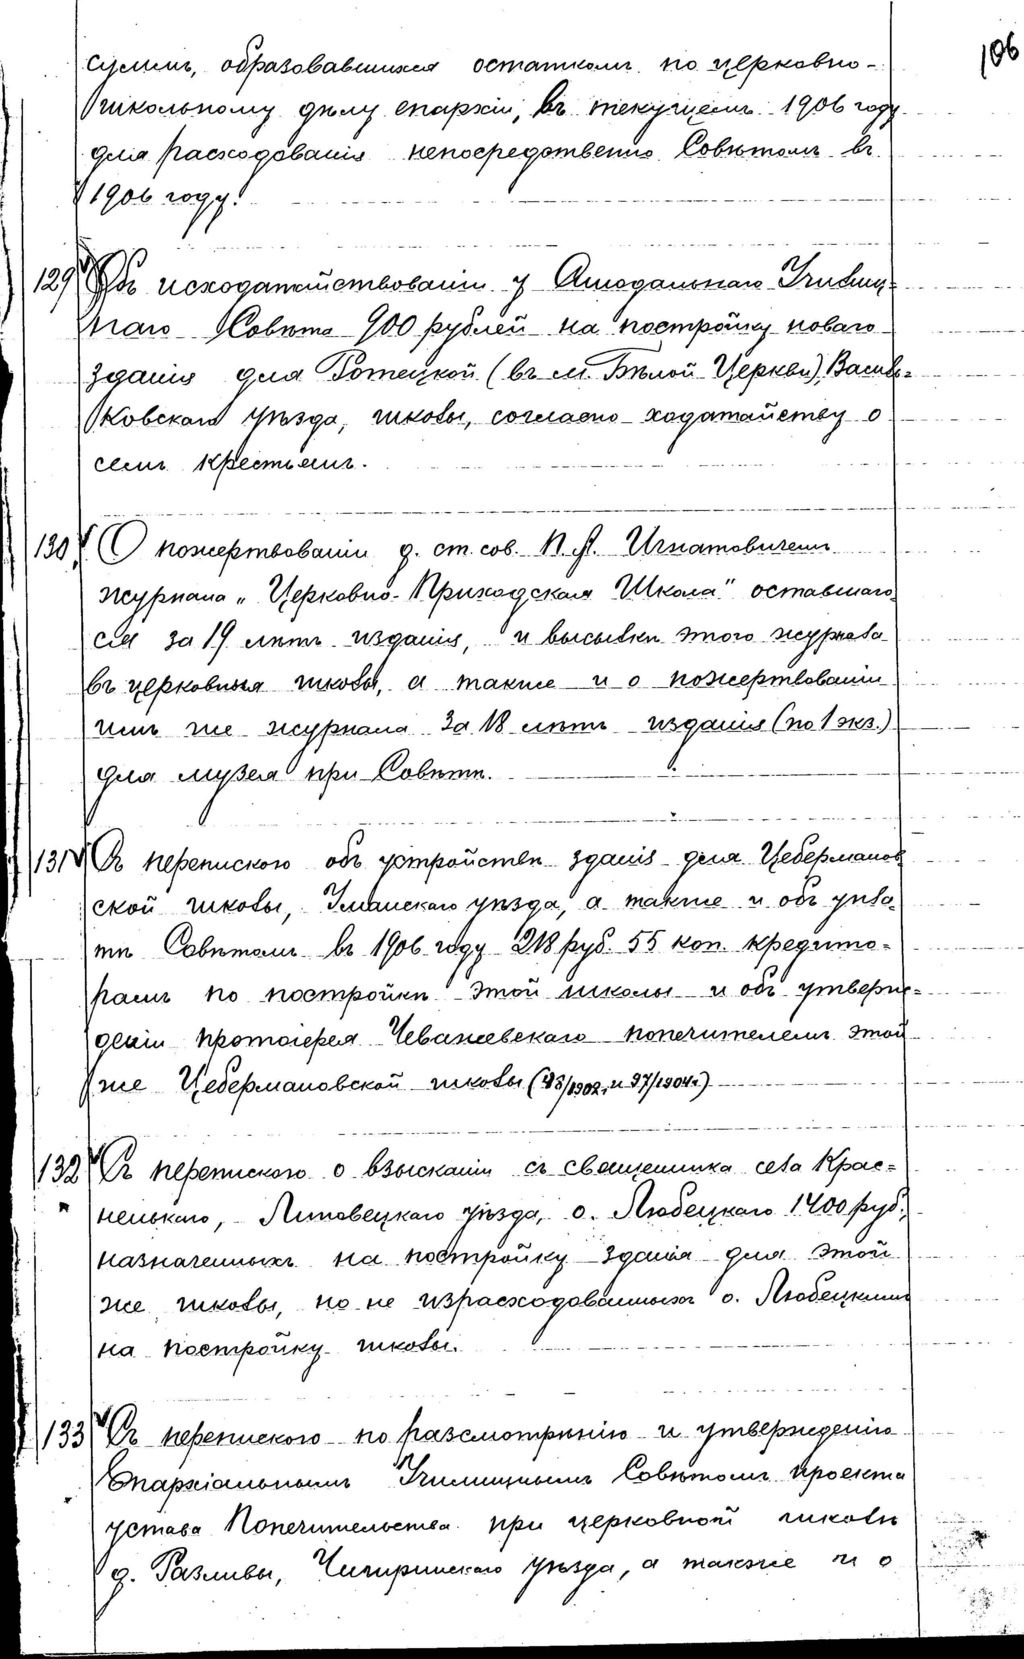 106
суммъ, образовавшихся остаткомъ по церковно-
школьному дѣлу епархіи, въ текущемъ 1906 году
для расходованія непосредственно Совѣтомъ въ
1906 году.
129 Объ исходатайствованіи у Училищ-
наго Совѣта 900 рублей на постройку новаго
зданія для Ротецкой (въ м. Бѣлой Церкви), Василь=
ковскаго уѣзда, школы, согласно ходатайству о
семъ крестьянъ.
130 О пожертвованіи д. ст. сов. П. А. Игнатовичемъ
журнала „Церковно-Приходская Школа" оставшаго
ся за 19 лѣтъ изданія, и высылкѣ этого журнала
въ церковныя школы, а также и о пожертвованіи
имъ же журнала за 18 лѣтъ изданія (по 1 экз.)
для музея при Совѣтѣ.
131 Съ перепискою объ устройствѣ зданія для Цеберманов
ской школы, Уманскаго уѣзда, а также и объ упла-
тѣ Совѣтомъ въ 1906 году 218 руб. 55 коп. кредито=
рамъ по постройкѣ этой школы и объ утверж=
деніи протоіерея попечителемъ этой
же Цебермановской школы (43/1902, и 97/1904г.)
132 Съ перепискою о взысканіи съ священника села Крас=
ненькаго, Липовецкаго уѣзда, о. Любецкаго 1400 руб.,
назначенныхъ на постройку зданія для этой
же школы, но не израсходованныхъ о. Любецкимъ
на постройку школы.
133 Съ перепискою по разсмотрѣнію и утвержденію
Епархіальнымъ Училищнымъ Совѣтомъ проекта
устава Попечительства при церковной школѣ
д. Разливы, Чигиринскаго уѣзда, а также и о